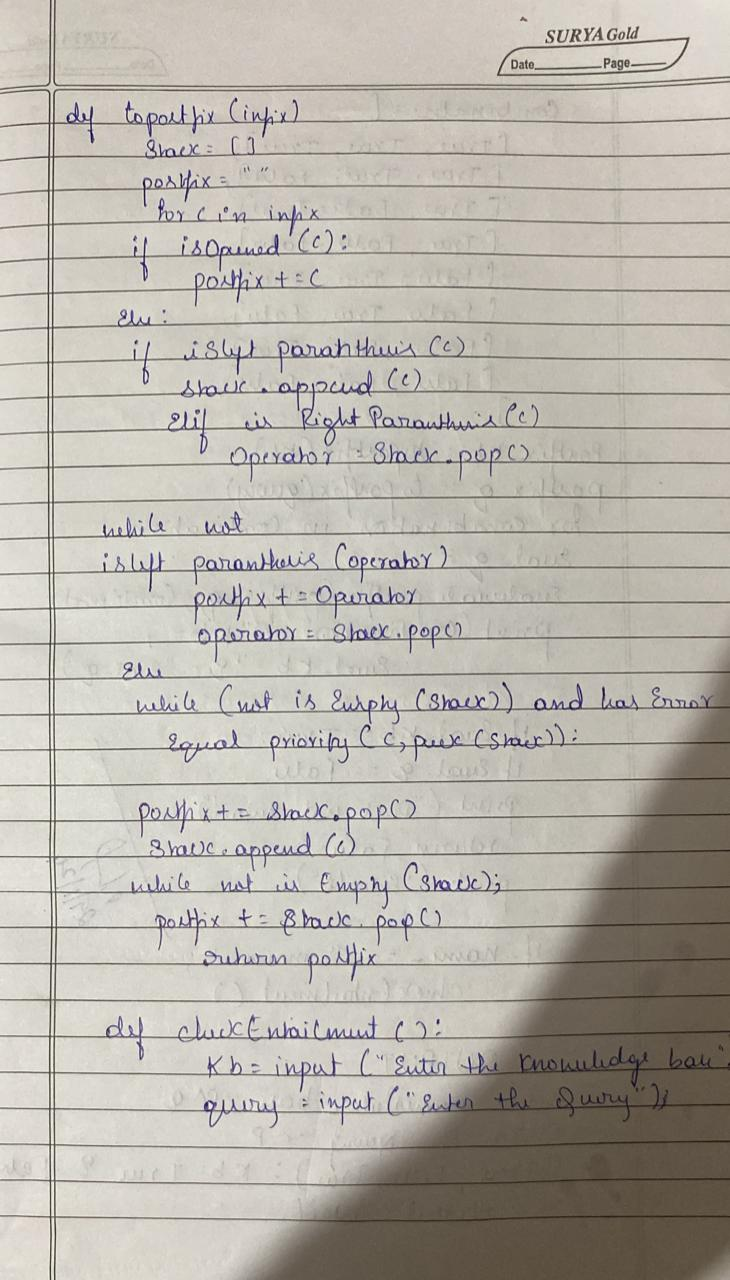 SURYA Gold
Date Page
def topostfix (infix)
Stack = []
postfix = " "
for c in infix
if isOpened (c):
postfix + = C
Else:
if isleft paranthesis (c)
stack . append (c)
Elif is Right Paranthesis (c)
Operator = Stack . pop ()
while not
isleft paranthesis (operator)
postfix + = Operator
operator = Stack . pop ()
Else
while (not is Empty (Stack)) and has Error
Equal priority (c, peek (Stack)):
postfix + = Stack . pop ()
Stack . append (c)
while not is Empty (Stack);
postfix + = Stack . pop ()
return postfix
def checkEntailment ():
Kb = input ("Enter the knowledge base"
query = input ("Enter the Query");